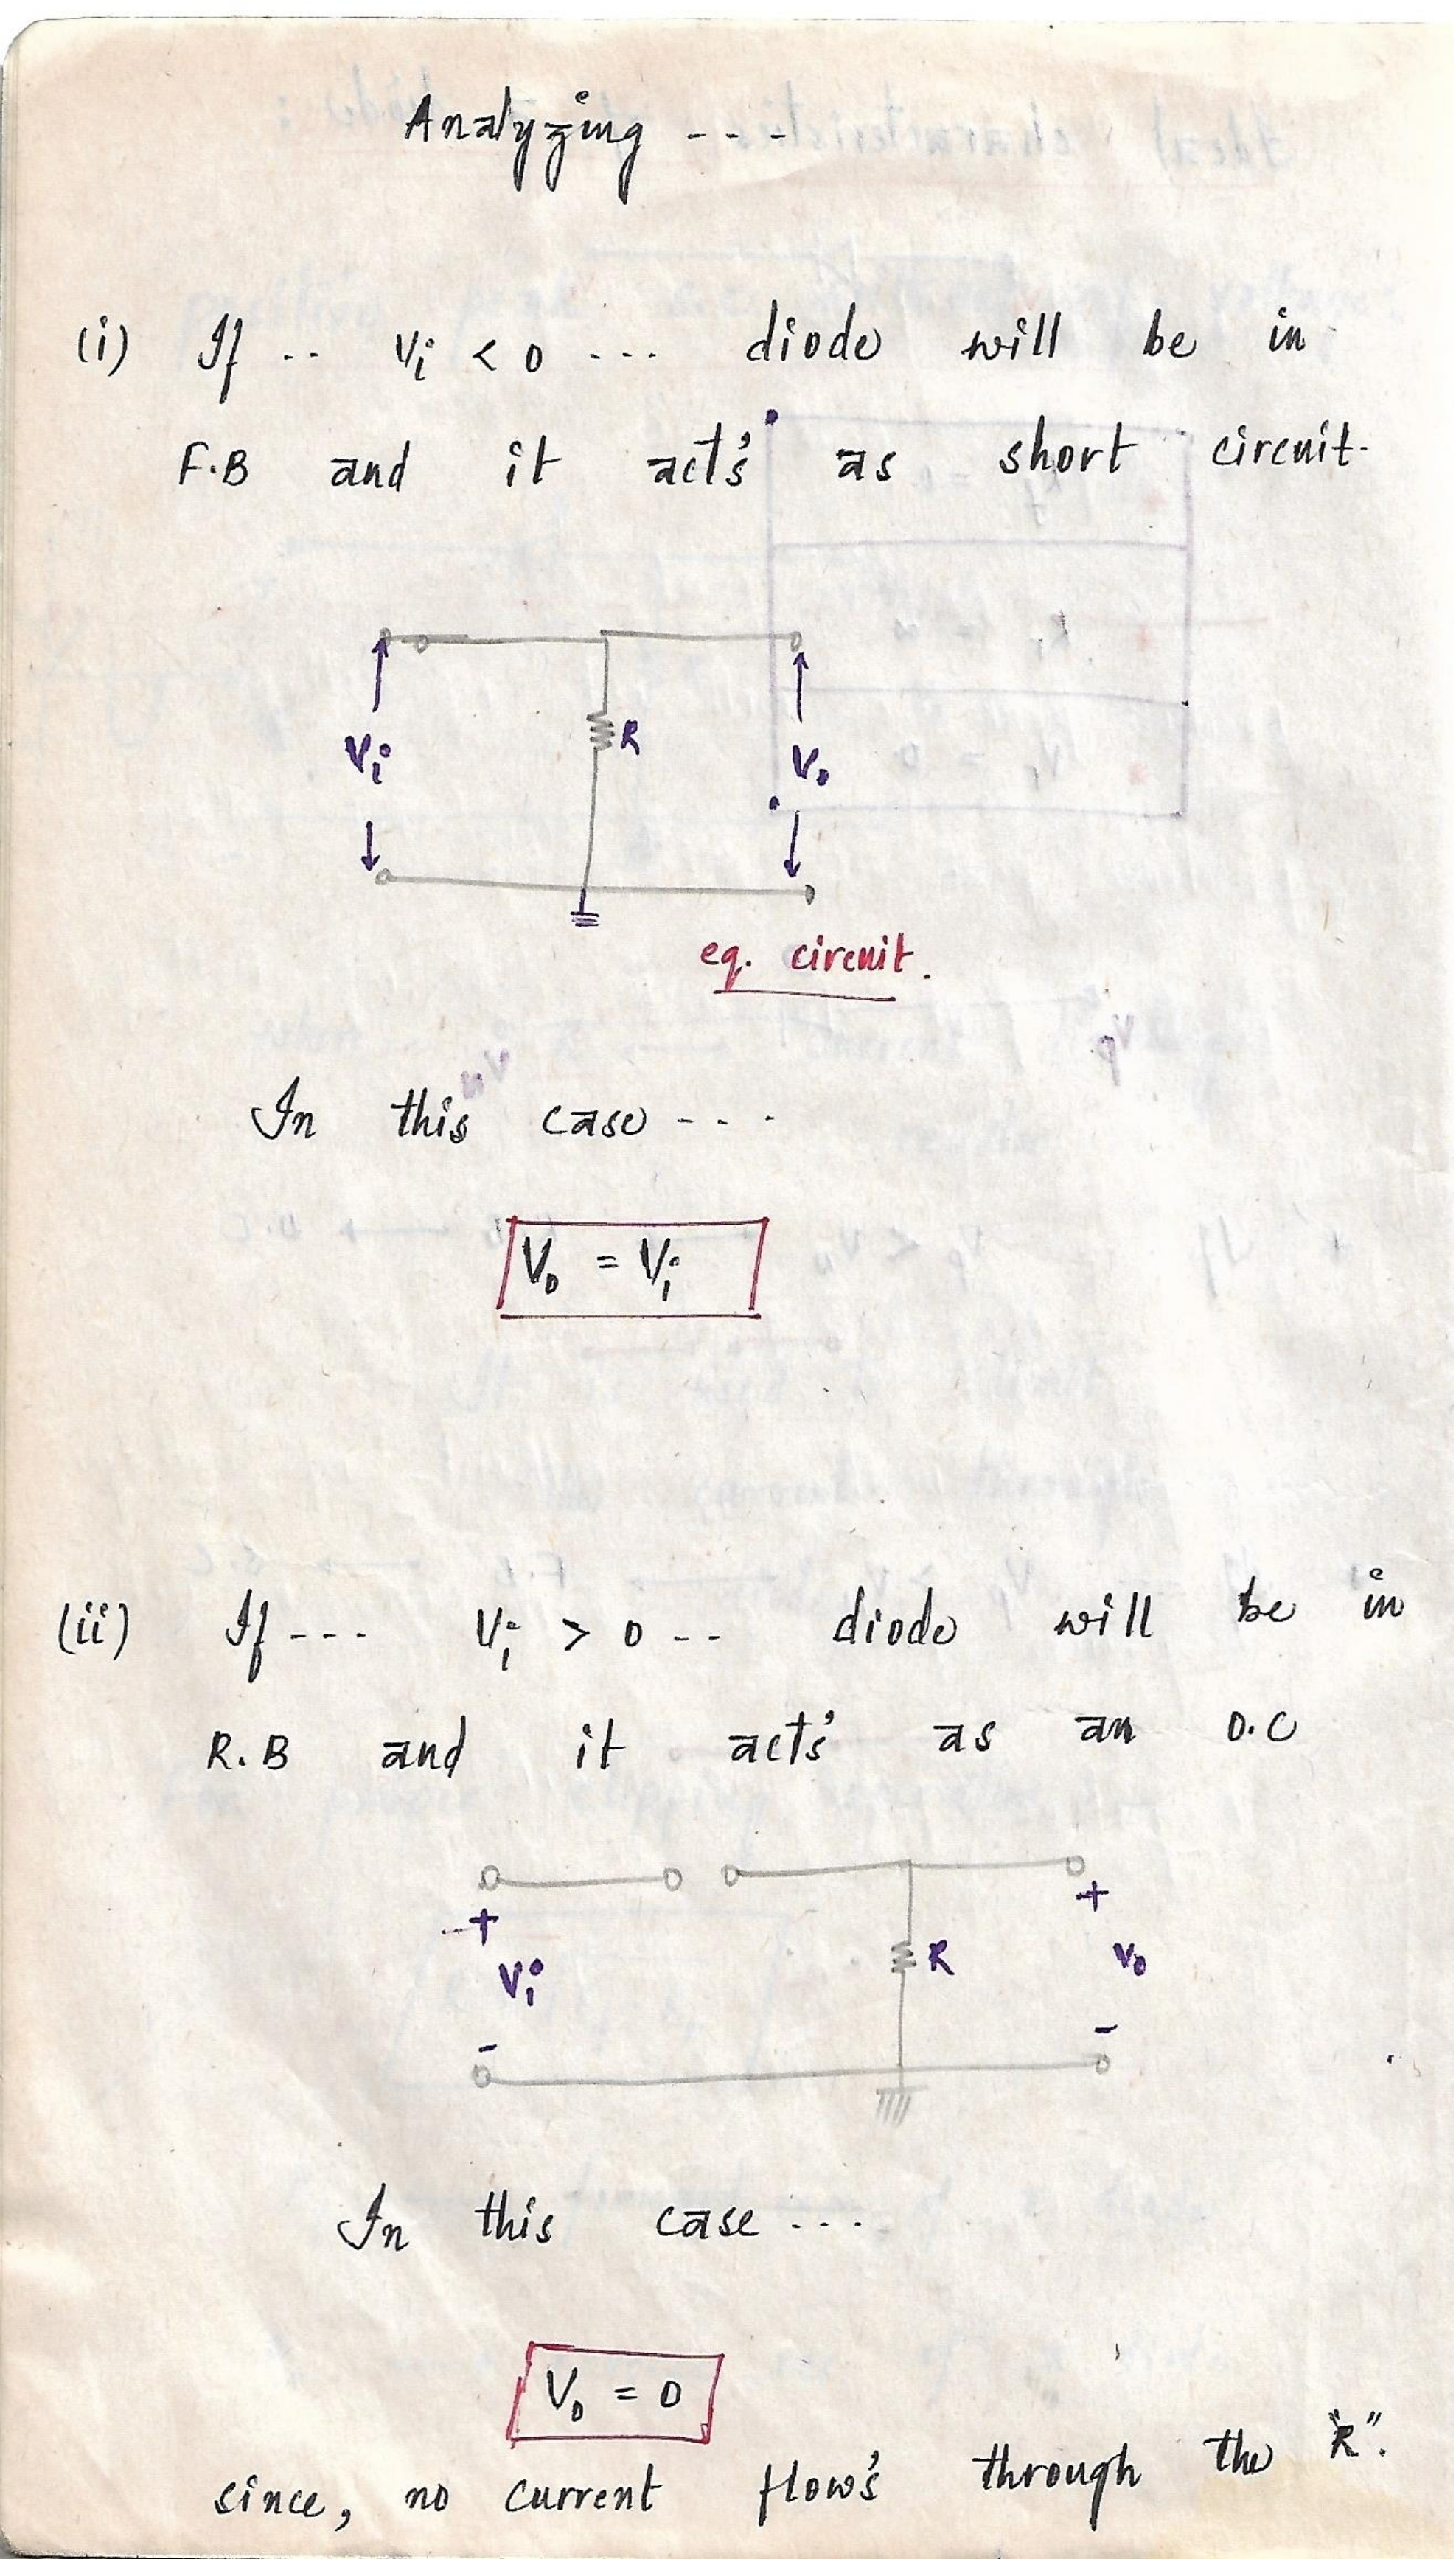 Analyzing ---
(i) If .. Vi < 0 ... diode will be in
F.B and it act's as short circuit.
Vi R Vo
eq. circuit.
In this case ----
Vo = Vi
(ii) If --- Vi > 0 -- diode will be in
R.B and it act's as an O.C
+ +
Vi R Vo
- -
In this case ...
Vo = 0
since, no current flow's through the "R".